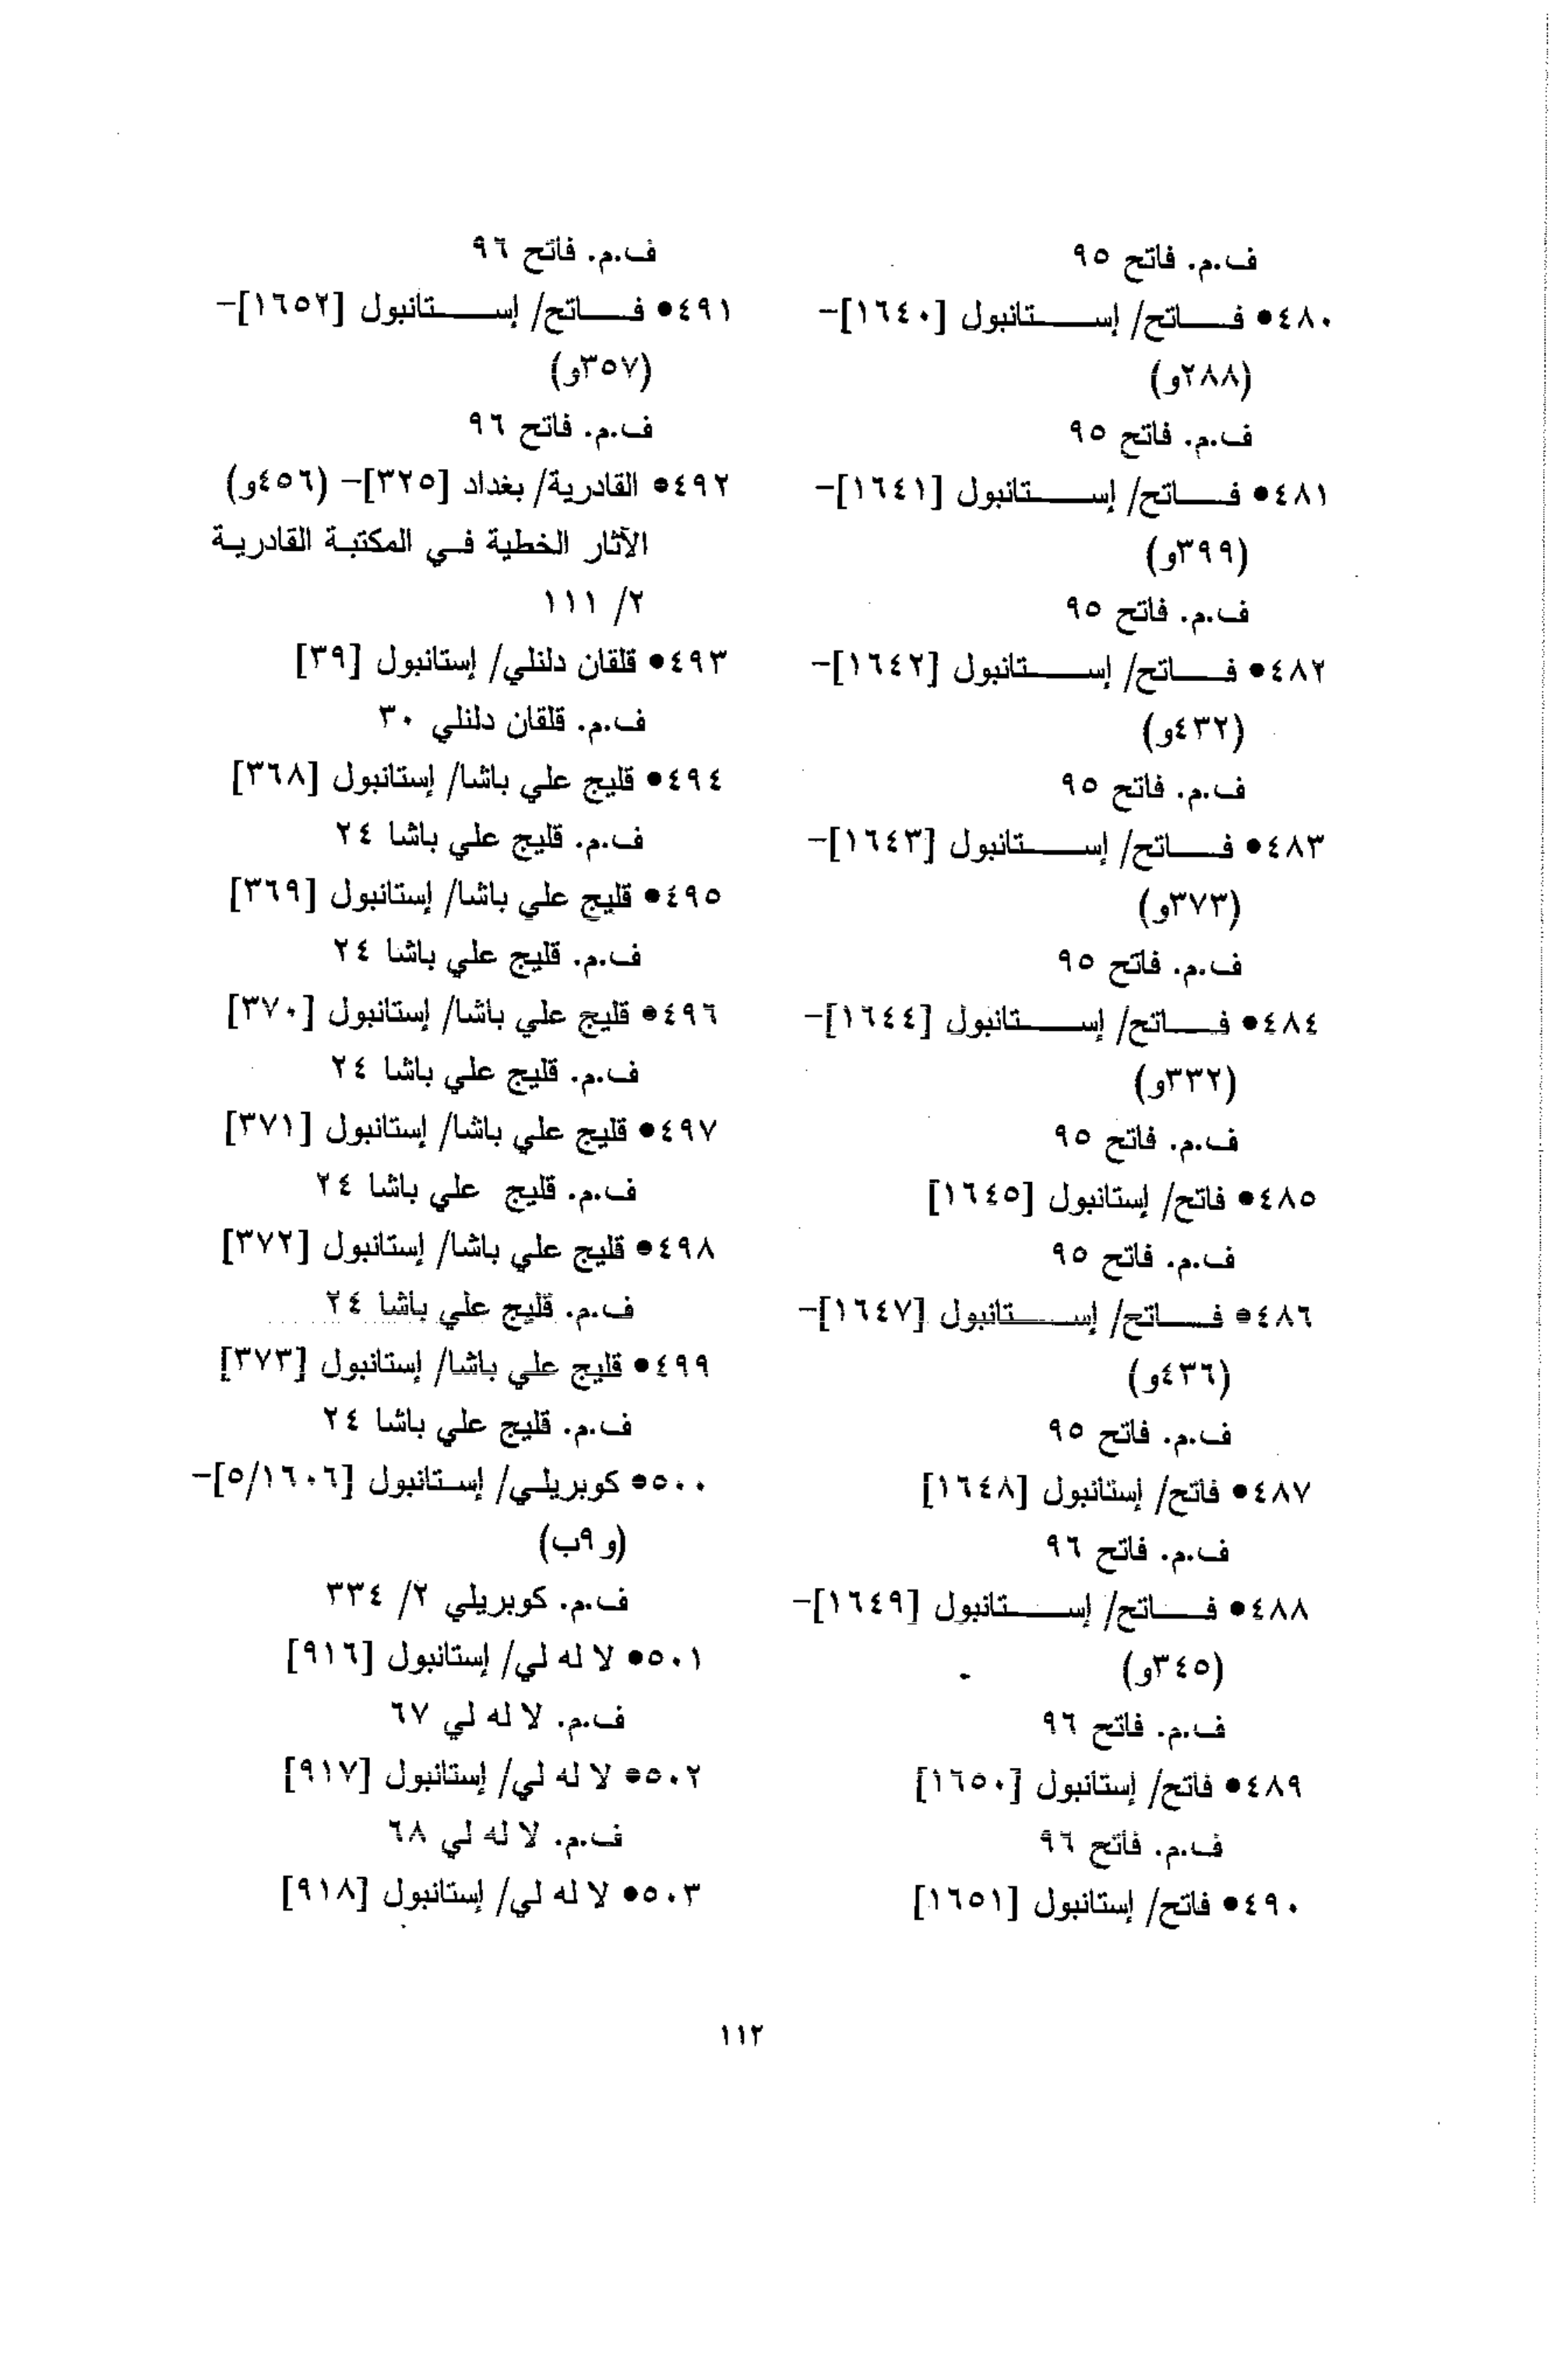 ف.م. فاتح ٩٥
٤٨٠● فاتح/ إستانبول [١٦٤٠]-
(٢٨٨و)
ف.م. فاتح ٩٥
٤٨١● فاتح/ إستانبول [١٦٤١]-
(٣٩٩و)
ف.م. فاتح ٩٥
٤٨٢● فاتح/ إستانبول [١٦٤٢]-
(٤٣٢و)
ف.م. فاتح ٩٥
٤٨٣● فاتح/ إستانبول [١٦٤٣]-
(٣٧٣و)
ف.م. فاتح ٩٥
٤٨٤● فاتح/ إستانبول [١٦٤٤]-
(٣٣٢و)
ف.م. فاتح ٩٥
٤٨٥● فاتح/ إستانبول [١٦٤٥]
ف.م. فاتح ٩٥
٤٨٦● فاتح/ إستانبول [١٦٤٧]-
(٤٣٦و)
ف.م. فاتح ٩٥
٤٨٧● فاتح/ إستانبول [١٦٤٨]
ف.م. فاتح ٩٦
٤٨٨● فاتح/ إستانبول [١٦٤٩]-
(٣٤٥و)
ف.م. فاتح ٩٦
٤٨٩● فاتح/ إستانبول [١٦٥٠]
ف.م. فاتح ٩٦
٤٩٠● فاتح/ إستانبول [١٦٥١]
ف.م. فاتح ٩٦
٤٩١● فاتح/ إستانبول [١٦٥٢]-
(٣٥٧و)
ف.م. فاتح ٩٦
٤٩٢● القادرية/ بغداد [٣٢٥]- (٤٥٦و)
الآثار الخطية في المكتبة القادرية
٢/ ١١١
٤٩٣● قلقان دلنلي/ إستانبول [٣٩]
ف.م. قلقان دلنلي ٣٠
٤٩٤● قليج علي باشا/ إستانبول [٣٦٨]
ف.م. قليج علي باشا ٢٤
٤٩٥● قليج علي باشا/ إستانبول [٣٦٩]
ف.م. قليج علي باشا ٢٤
٤٩٦● قليج علي باشا/ إستانبول [٣٧٠]
ف.م. قليج علي باشا ٢٤
٤٩٧● قليج علي باشا/ إستانبول [٣٧١]
ف.م. قليج علي باشا ٢٤
٤٩٨● قليج علي باشا/ إستانبول [٣٧٢]
ف.م. قليج علي باشا ٢٤
٤٩٩● قليج علي باشا/ إستانبول [٣٧٣]
ف.م. قليج علي باشا ٢٤
٥٠٠● كوبريلي/ إستانبول [٥/١٦٠٦]-
(و ٩ب)
ف.م. كوبريلي ٢/ ٣٣٤
٥٠١● لا له لي/ إستانبول [٩١٦]
ف.م. لا له لي ٦٧
٥٠٢● لا له لي/ إستانبول [٩١٧]
ف.م. لا له لي ٦٨
٥٠٣● لا له لي/ إستانبول [٩١٨]
١١٢